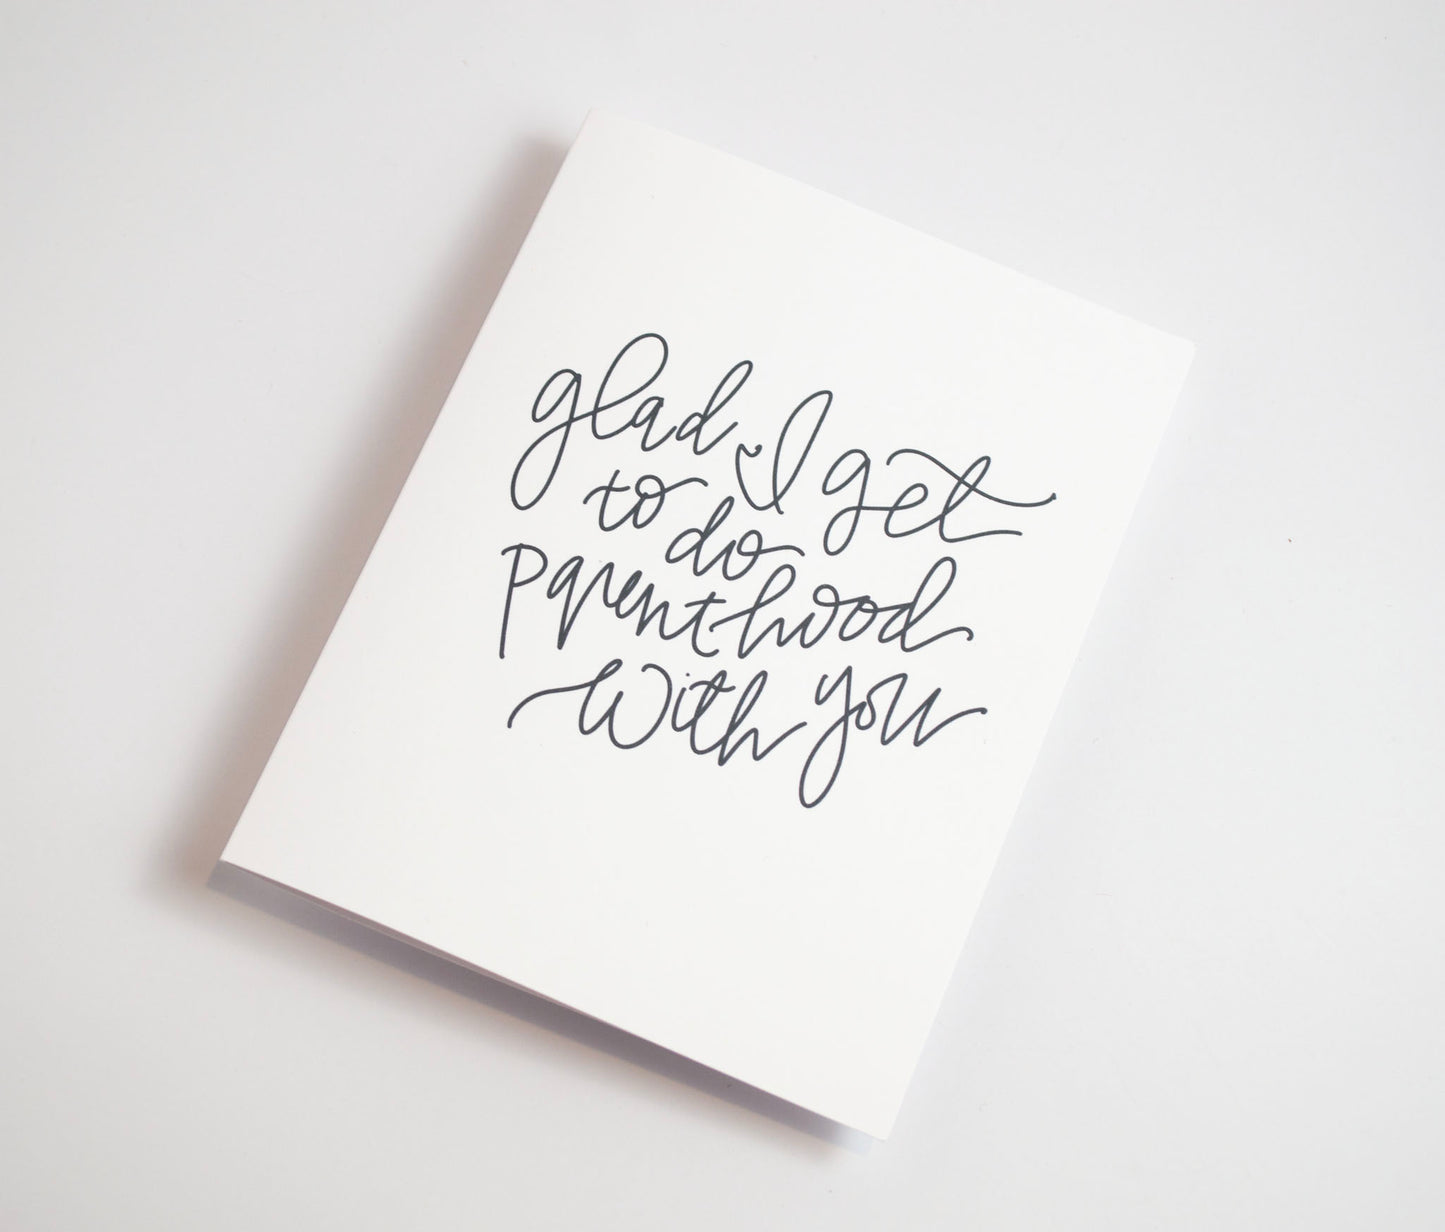 glad I get
to do
parenthood
with you